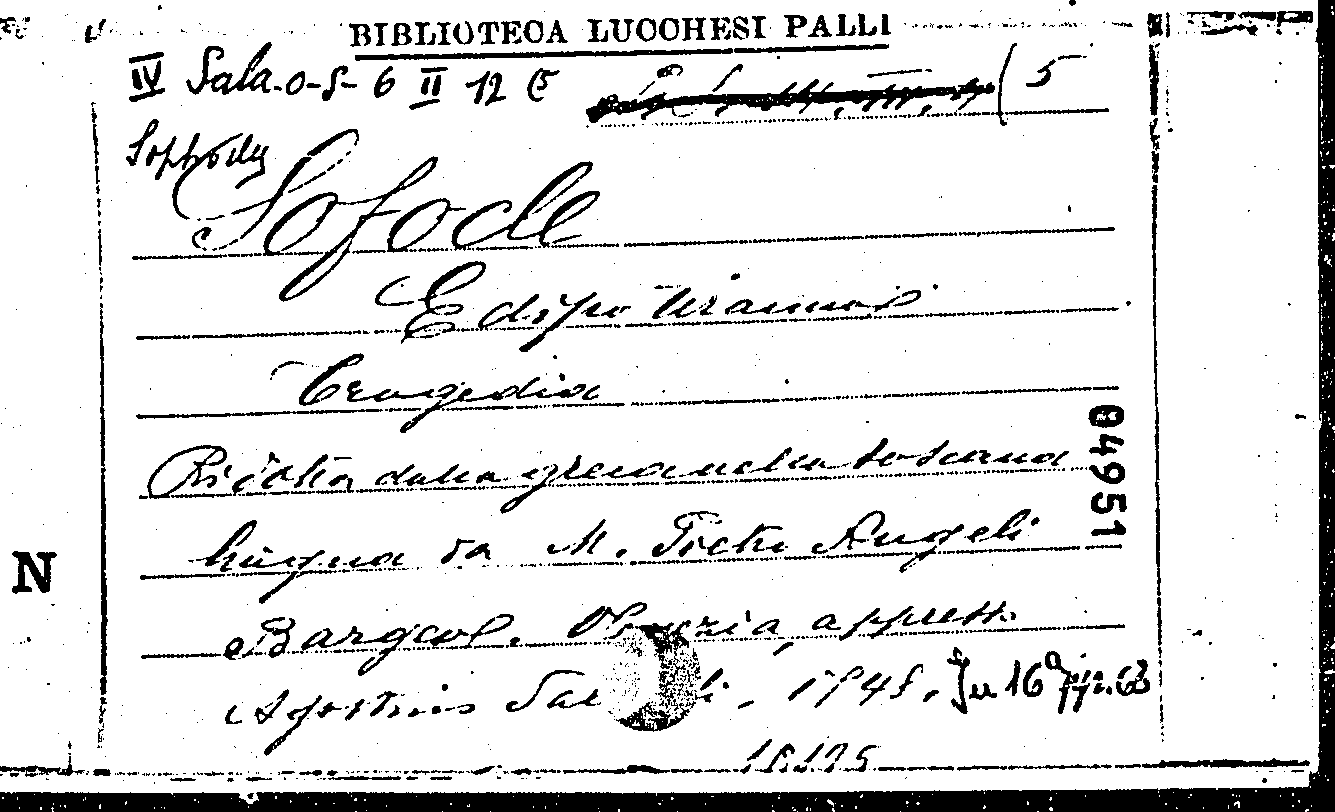 BIBLIOTECA LUCCHESI PALLI
IV Sala-o-S-6 II 12 (5
(5
Sophocles
Sofocle
Edipo tiranno
Tragedia
Ridotta dalla greca nella toscana
lingua da M. Pietro Angeli
Bargeo. appress.
Agostino In 16° pp. 63
04951
N